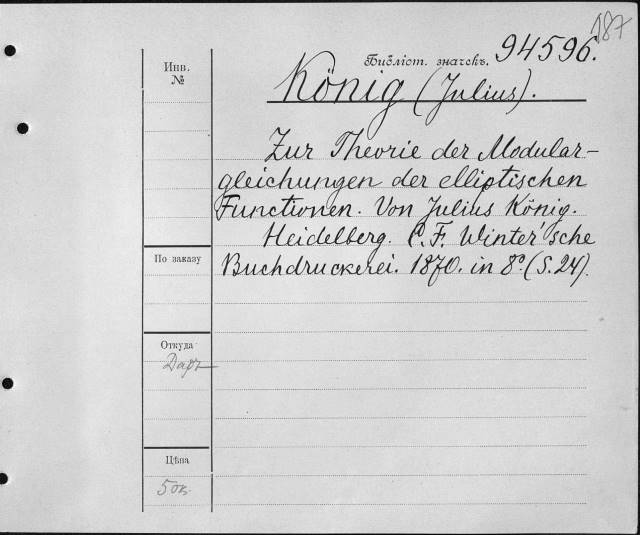 187
Библіот. значекъ. 94596.
Инв.
№
König (Julius).
Zur Theorie der Modular-
gleichungen der elliptischen
Functionen. Von Julius König.
Heidelberg. C. F. Winter'sche
Buchdruckerei. 1870. in 8º. (S. 24).
По заказу
Откуда
Даръ
Цѣна
50к.